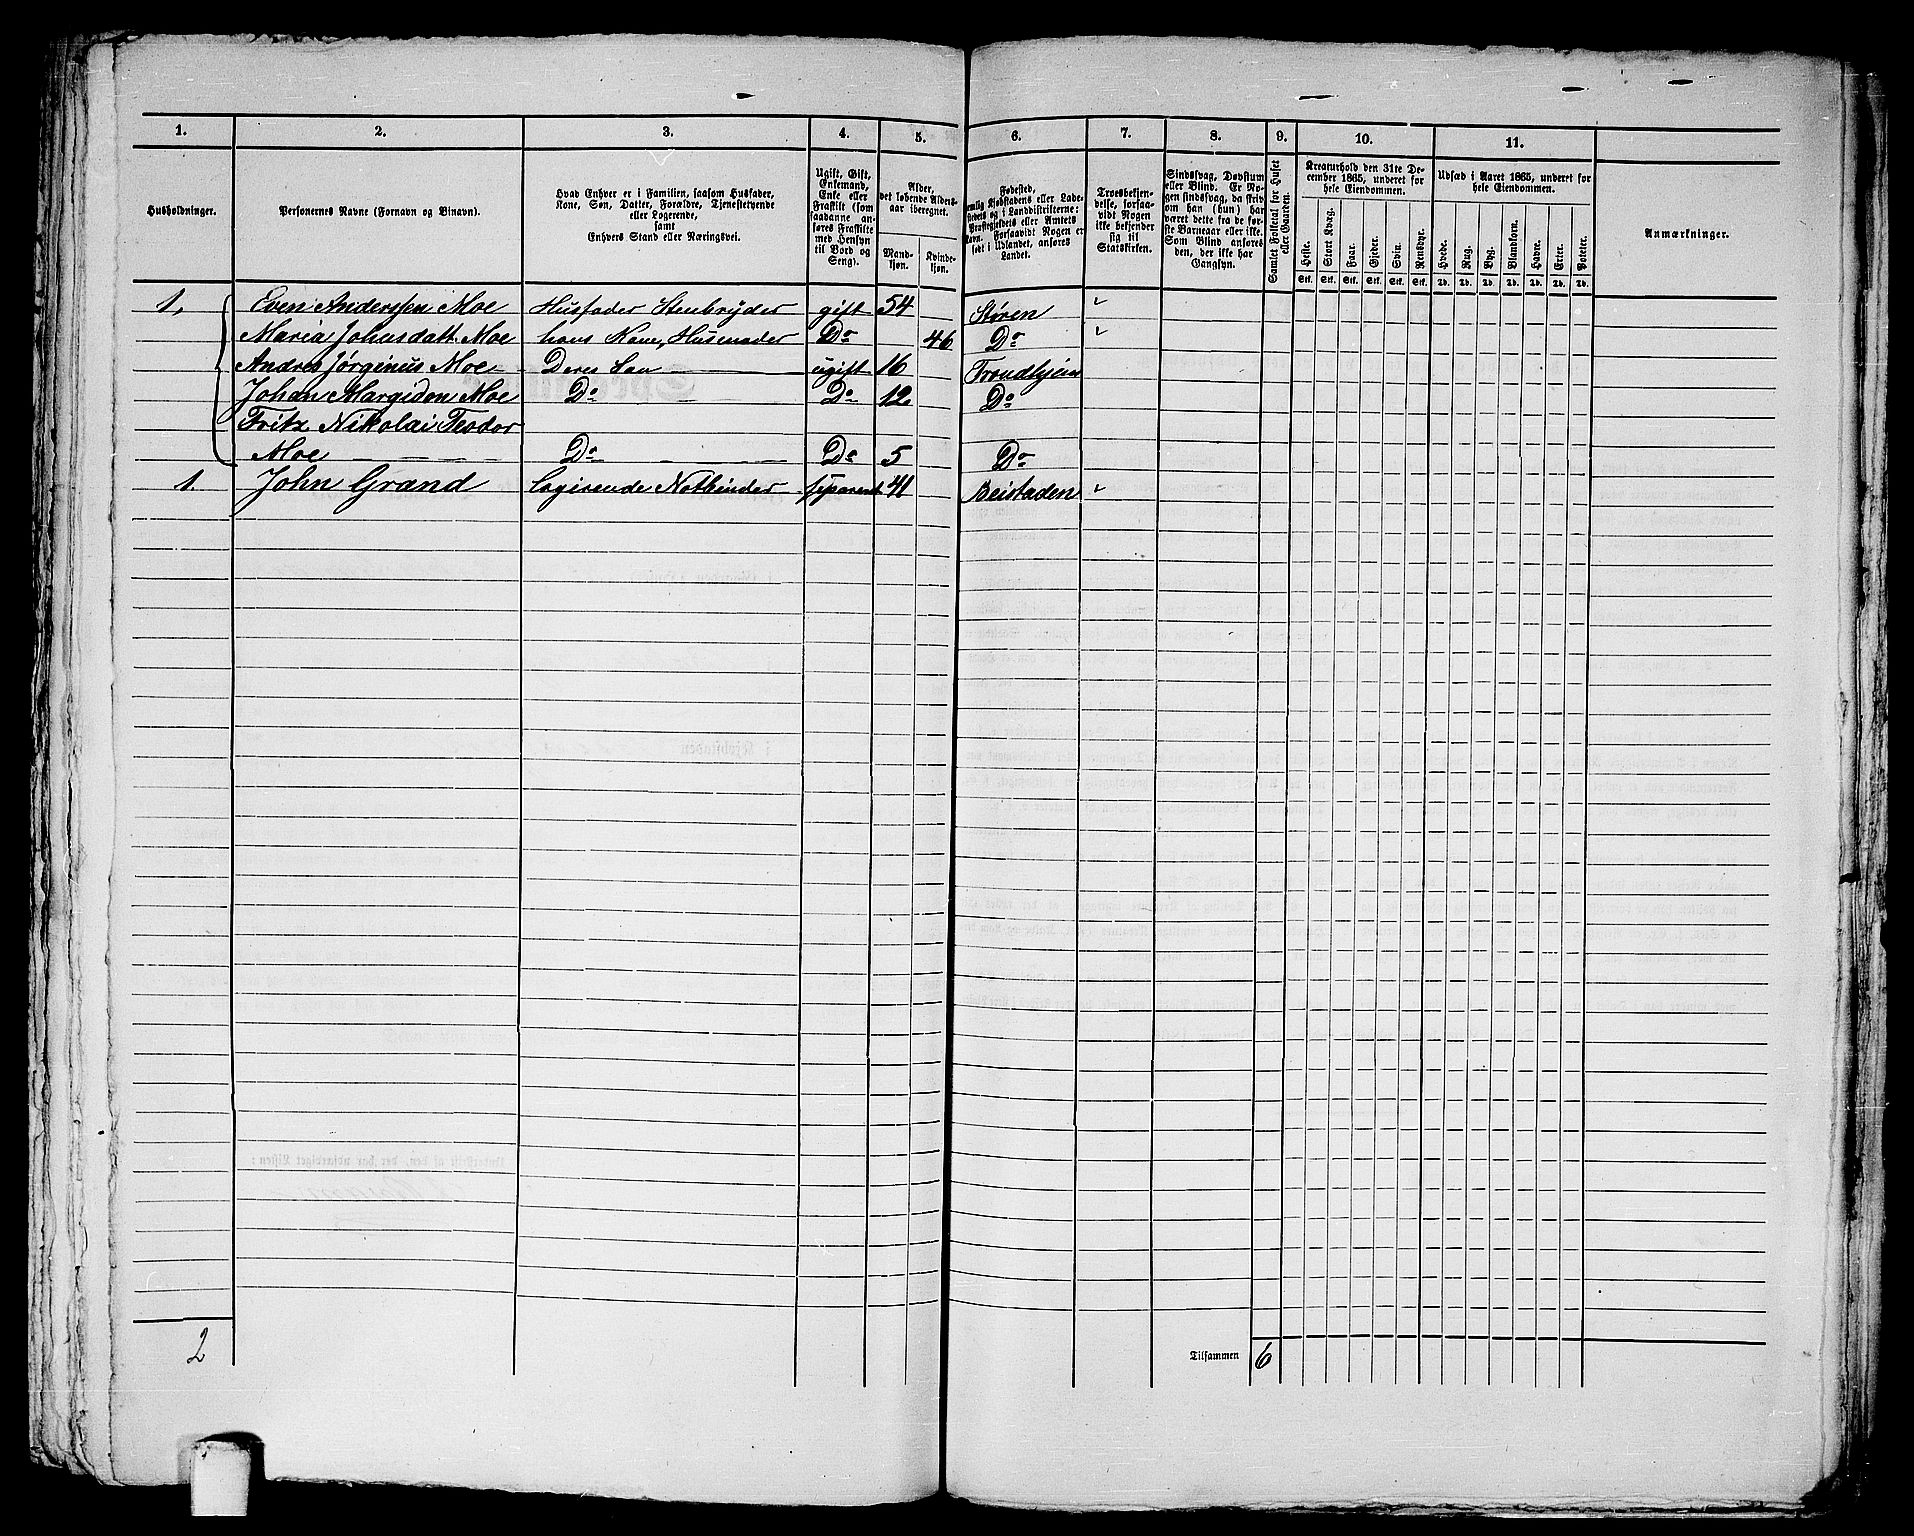 1. 2. 3. 4. 5. 6. 7. 8. 9. 10. 11.
Husholdninger.
Personernes Navne (Fornavn og Binavn).
Hvad Enhver er i Familien, saasom Husfader,
Kone, Søn, Datter, Forældre, Tjenestetyende
eller Logerende,
samt
Enhvers Stand eller Næringsvei.
Ugift, Gift,
Enkemand,
Enke eller
Fraskilt (som
saadanne an-
føres Fraskilte
med Hensyn
til Bord og
Seng).
Alder,
det løbende Alders-
aar iberegnet.
Mand-
kjøn.
Kvinde-
kjøn.
Fødested,
nemlig Kjøbstadens eller Lade-
stedets og i Landdistrikterne:
Præstegjeldets eller Amtets
Navn. Forsaavidt Nogen er
født i Udlandet, anføres
Landet.
Troesbekjen-
delse, forsaa-
vidt Nogen
ikke bekjender
sig til
Statskirken.
Sindssvag, Døvstum
eller Blind. Er No-
gen sindssvag, da skriv
om han (hun) har
været dette fra de før-
ste Barneaar eller ikke.
Som Blind anføres
den, der ikke har
Gangsyn.
Samlet Folketal for Huset
eller Gaarden.
Kreaturhold den 31te De-
cember 1865, underet for
hele Eiendommen.
Heste. Stort Kvæg. Faar. Gjeder. Svin. Rensdyr.
Stk. Stk. Stk. Stk. Stk. Stk.
Udsæd i Aaret 1865, underet for
hele Eiendommen.
Hvede. Rug. Byg. Blandkorn. Havre. Erter. Poteter.
Td. Td. Td. Td. Td. Td. Td.
Anmærkninger.
1. Even Anderssen Moe Husfader Stenbryder gift 54 Støren
Maria Johnsdatt. Moe hans Kone, Husmoder Do 46 Do
Andres Jørginus Moe Deres Søn ugift 16 Trondhjem
Johan Margidon Moe Do Do 12 Do
Fritz Nikolai Teodor
Moe Do Do 5 Do
1. John Grand Logirende Notbinder separert 41 Beistaden
2 Tilsammen 6